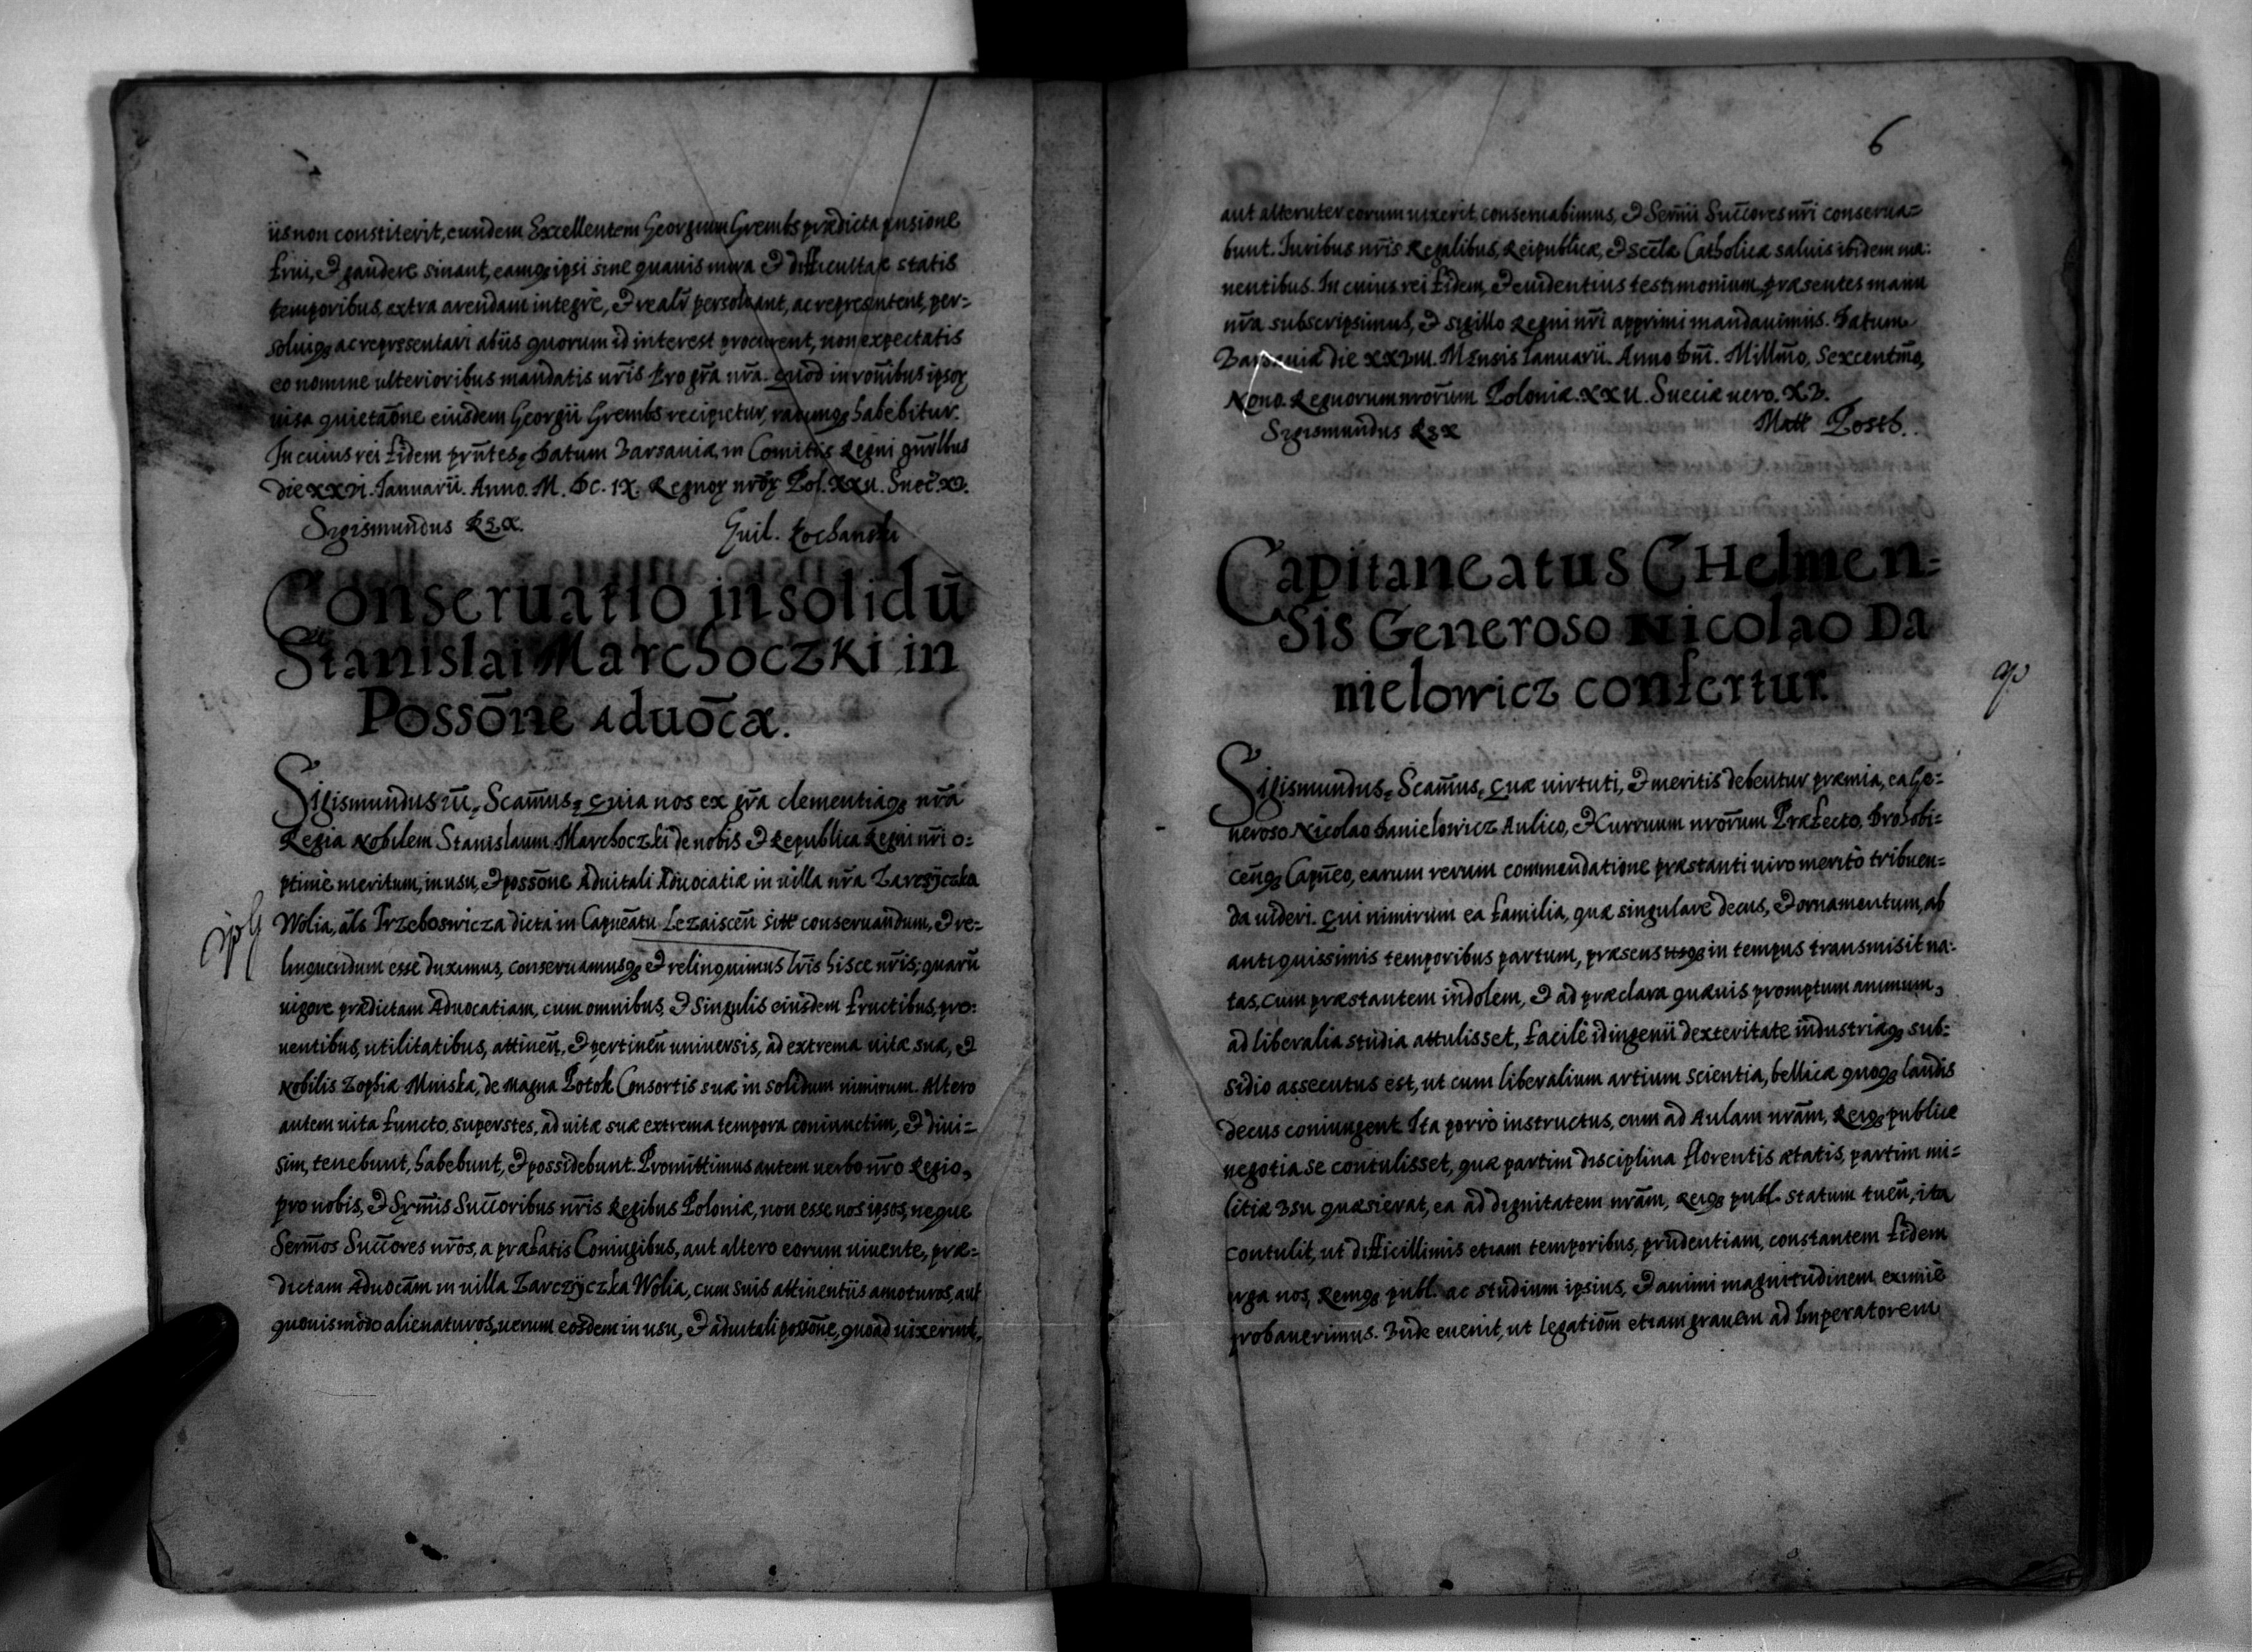 iis non constiterit, eundem Excellentem Georgium Grembs prædicta pnsione
frui, et gaudere sinant, eamq; ipsi sine quauis mora et difficultate statis
temporibus, extra arendam integrè, et realr persoluant, ac repręsentent, per-
soluiq; ac repręsentari ab iis quorum id interest procurent, non expectatis
eo nomine ulterioribus mandatis nr̃is Pro gr̃a nr̃a. Quod in ronibus ipsoꝝ
uisa quietaõne eiusdem Georgii Grembs recipietur, ratumq; habebitur.
In cuius rei fidem pñtesę Datum Varsauiæ, in Comitiis Regni gñlbus
die XXVI. Ianuarii. Anno. M. DC. IX. Regnoꝝ nr̃oꝝ Pol. XXII. Suec̃. XV.
Sigismundus Rex.
Guil. Kochanski
Conseruatio in solidũ
Stanislai Marchoczki in
Possõne Aduoc̃æ.
Sigismundus III. Scam̃usę Quia nos ex gr̃a clementiaq; nr̃a
Regia Nobilem Stanislaum Marchoczki de nobis et Republica Regni nr̃i o-
ptimè meritum, in usu, et possõne Aduitali Aduocatiæ in uilla nr̃a Zarczÿczka
Wolia, als Przeboswicza dicta in Capneãtu Lezaisceñ sitæ conseruandum, et re-
linquendum esse duximus, conseruamusq; et relinquimus lr̃is hisce nr̃is; quarũ
uigore prædictam Aduocatiam, cum omnibus, et singulis eiusdem fructibus, pro-
uentibus, utilitatibus, attineñ, et pertineñ uniuersis, ad extrema uitæ suæ, et
Nobilis Zophiæ Mniska, de Magna Potok Consortis suæ in solidum nimirum. Altero
autem uita functo, superstes, ad uitæ suæ extrema tempora coniunctim, et diui-
sim, tenebunt, habebunt, et possidebunt. Promittimus autem uerbo nr̃o Regio,
pro nobis, et Serm̃is Succ̃oribus nr̃is Regibus Poloniæ, non esse nos ipsos, neque
Serm̃os Succ̃ores nr̃os, a præfatis Coniugibus, aut altero eorum uiuente, præ-
dictam Aduocãm in uilla Zarczÿczka Wolia, cum suis attinentiis amoturos, aut
quouis modo alienaturos, uerum eosdem in usu, et aduitali possõne, quoad uixerint,
6
aut alteruter eorum uixerit, conseruabimus, et Serm̃i Succ̃ores nr̃i conserua-
bunt. Iuribus nr̃is Regalibus, Reipublicæ, et Eccl̃æ Catholicæ saluis ibidem ma-
nentibus. In cuius rei fidem, et euidentius testimonium præsentes manu
nr̃a subscripsimus, et sigillo Regni nr̃i apprimi mandauimus. Datum
Varsauiæ die XXVIII. Mensis Ianuarii. Anno Dñi. Millm̃o, Sexcentm̃o,
Nono. Regnorum nrorum Poloniæ. XXII. Sueciæ uero. XV.
Sigismundus Rex
Matt Postb.
Capitaneatus Chelmen-
sis Generoso Nicolao Da
nielowicz confertur.
Sigismundusę Scam̃usę Quæ uirtuti, et meritis debentur præmia, ea Ge-
neroso Nicolao Danielowicz Aulico, et Curruum nr̃orum Præfecto, Drohobi-
ceñq; Capñeo, earum rerum commendatione præstanti uiro meritò tribuen-
da uideri. Qui nimirum ea familia, quæ singulare decus, et ornamentum, ab
antiquissimis temporibus partum, præsens usq; in tempus transmisit na-
tas, cum præstantem indolem, et ad præclara quæuis promptum animum,
ad liberalia studia attulisset, facilè id ingenii dexteritate industriaq; sub-
sidio assecutus est, ut cum liberalium artium scientia, bellicæ quoq; laudis
decus coniungeret. Ita porrò instructus, cum ad Aulam nr̃am, Reiq; publicæ
negotia se contulisset, quæ partim disciplina florentis ætatis, partim mi-
litiæ Vsu quæsierat, ea ad dignitatem nr̃am, Reiq; publ. statum tueñ, ita
contulit, ut difficillimis etiam temporibus, prudentiam, constantem fidem
erga nos, Remq; publ. ac studium ipsius, et animi magnitudinem eximiè
probauerimus. Vnde euenit, ut legatiõm etiam grauem ad Imperatorem